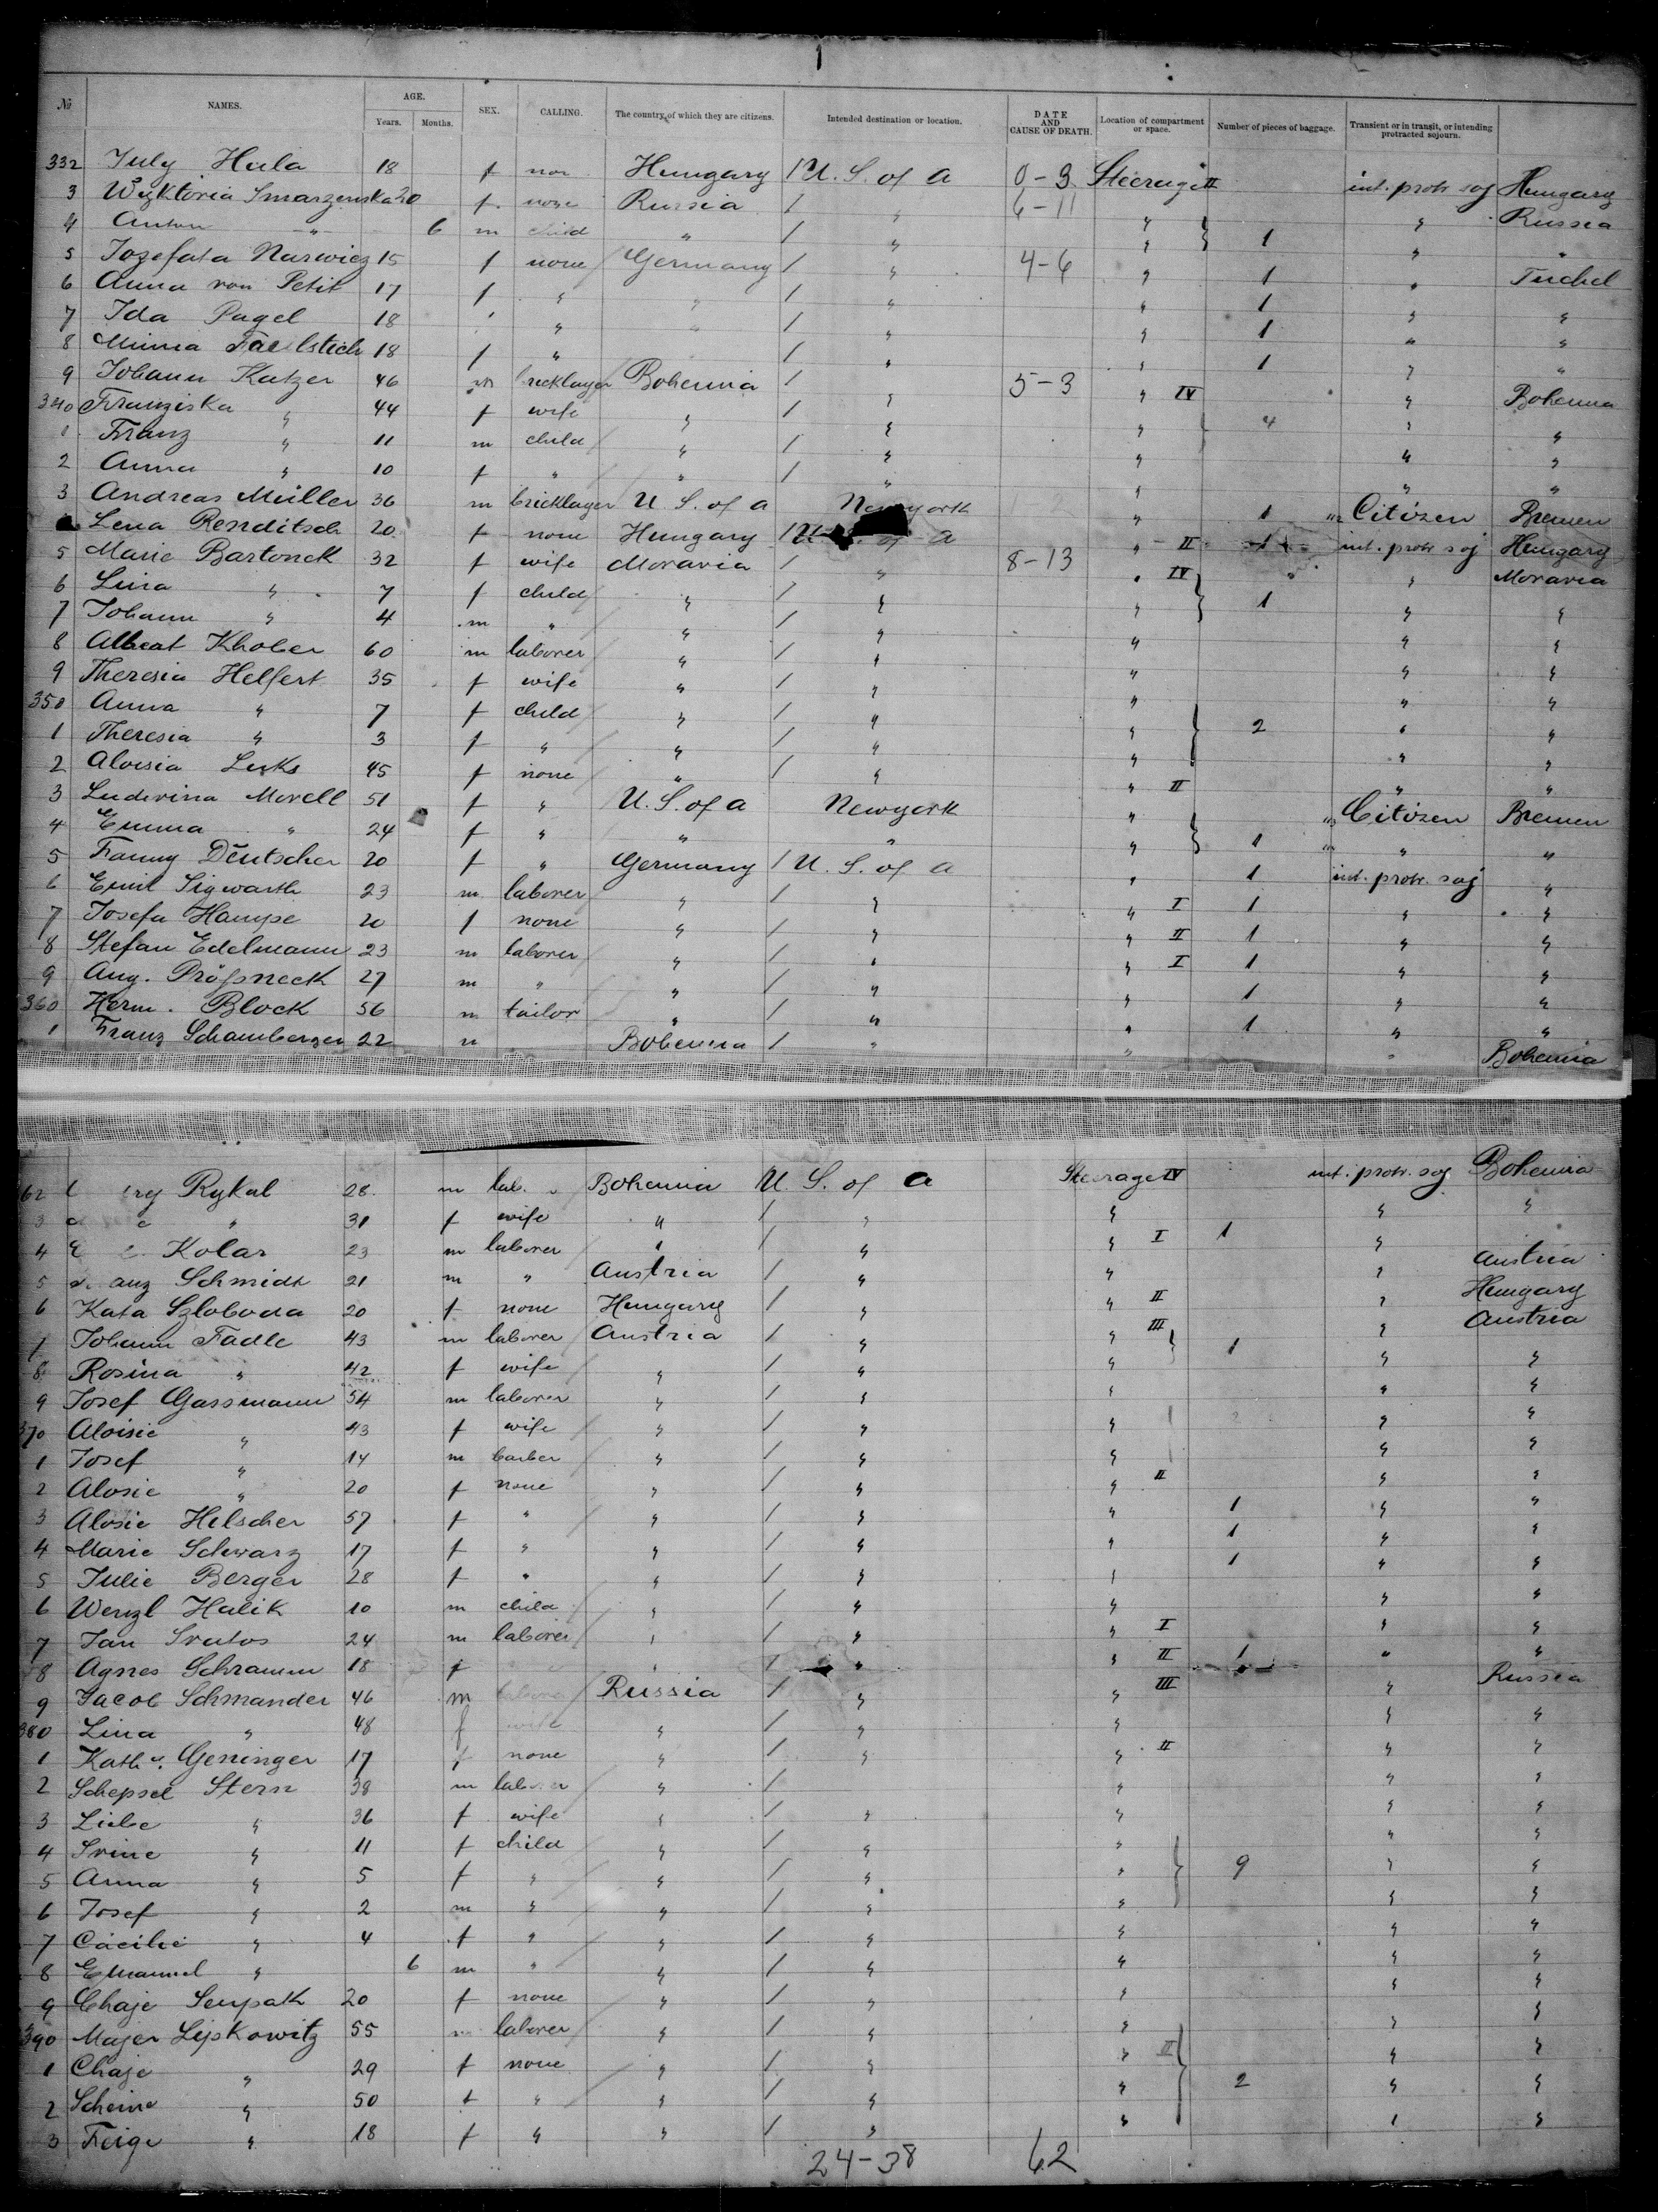 № NAMES. AGE. Years. Months. SEX. CALLING. The country of which they are citizens. Intended destination or location. DATE AND CAUSE OF DEATH. Location of compartment or space. Number of pieces of baggage. Transient or in transit, or intending protracted sojourn.
332 July Hula 18 f non Hungary / U. S. of A 0-3 Steerage II int. protr. soj Hungary
3 Wyktoria Smarzenska 20 f. none Russia / " 6-11 " " Russia
4 Anton " 6 m child " / " " } 1 " "
5 Jozefata Narwicz 15 f none Germany / " 4-6 " 1 " Tuchel
6 Anna von Petit 17 f " " / " " 1 " "
7 Ida Pagel 18 " " / " " 1 " "
8 Minna 18 f " / " " 1 " "
9 Johann Katzer 46 m bricklayer Bohemia / " 5-3 " IV " Bohemia
340 Franziska " 44 f wife " / " " 4 " "
1 Franz " 11 m child " / " " " "
2 Anna " 10 f " " / " " " "
3 Andreas Müller 36 m bricklayer U. S. of A Newyork " 1 Citizen Bremen
Lena Renditsch 20 f none Hungary / U S. of A " II 1 int. protr soj Hungary
5 Marie Bartonek 32 f wife Moravia / " 8-13 " IV " Moravia
6 Lina " 7 f child " / " " } 1 " "
7 Johann " 4 m " " / " " " "
8 Albert Khober 60 m laborer " / " " " "
9 Theresia Helfert 35 f wife " / " " " "
350 Anna " 7 f child " / " " } 2 " "
1 Theresia " 3 f " " / " " " "
2 Aloisia Luks 45 f none " / " " II " "
3 Ludovina Morell 51 f " U. S. of A Newyork " Citizen Bremen
4 Emma " 24 f " " " " } 1 " "
5 Fanny Deutscher 20 f " Germany / U. S. of A " 1 int. protr. soj "
6 Emil Sigwarth 23 m laborer " / " " I 1 " "
7 Josefa Hampe 20 f none " / " " II 1 " "
8 Stefan Edelmann 23 m laborer " / " " I 1 " "
9 Aug. Prößneck 27 m " " / " " 1 " "
360 Herm. Block 56 m tailor " / " " 1 " "
1 Franz Schamberger 22 m Bohemia / " " " Bohemia
62 Rykal 28 m lab. Bohemia U. S. of A Steerage IV int. protr. soj Bohemia
3 " 31 f wife " / " " " "
4 Kolar 23 m laborer " / " " I 1 "
5 anz Schmidt 21 m " Austria / " " " Austria
6 Kata Szloboda 20 f none Hungary / " " II " Hungary
7 Johann Fadle 43 m laborer Austria / " " III } 1 " Austria
8 Rosina " 42 f wife " / " " " "
9 Josef Gassmann 54 m laborer " / " " " "
370 Aloisie " 43 f wife " / " " 2 " "
1 Josef " 14 m barber " / " " " "
2 Alosie " 20 f none " / " " II " "
3 Alosie Hilscher 57 f " " / " " 1 " "
4 Marie Schwarz 17 f " " / " " 1 " "
5 Julie Berger 28 f " " / " " 1 " "
6 Wenzl Halik 10 m child " / " " " "
7 Jan 24 m laborer " / " " I " "
8 Agnes Schramm 18 f " / " " II 1 " "
9 Jacob Schmander 46 m laborer Russia / " " III " Russia
380 Lina " 48 f wife " / " " " "
1 Kath. Geninger 17 f none " / " " II " "
2 Schepsel Stern 38 m laborer " / " " "
3 Liebe " 36 f wife " / " " " "
4 " 11 f child " / " " " "
5 Anna " 5 f " " / " " } 9 " "
6 Josef " 2 m " " / " " " "
7 Cäcilie " 4 f " " / " " " "
8 Emanuel " 6 m " " / " " " "
9 Chaje 20 f none " / " " " "
390 Majer Lipkowitz 55 m laborer " / " " " "
1 Chaje " 29 f none " / " " II " "
2 " 50 f " " / " " } 2 " "
3 Feige " 18 f " " / " " " "
24-38 62